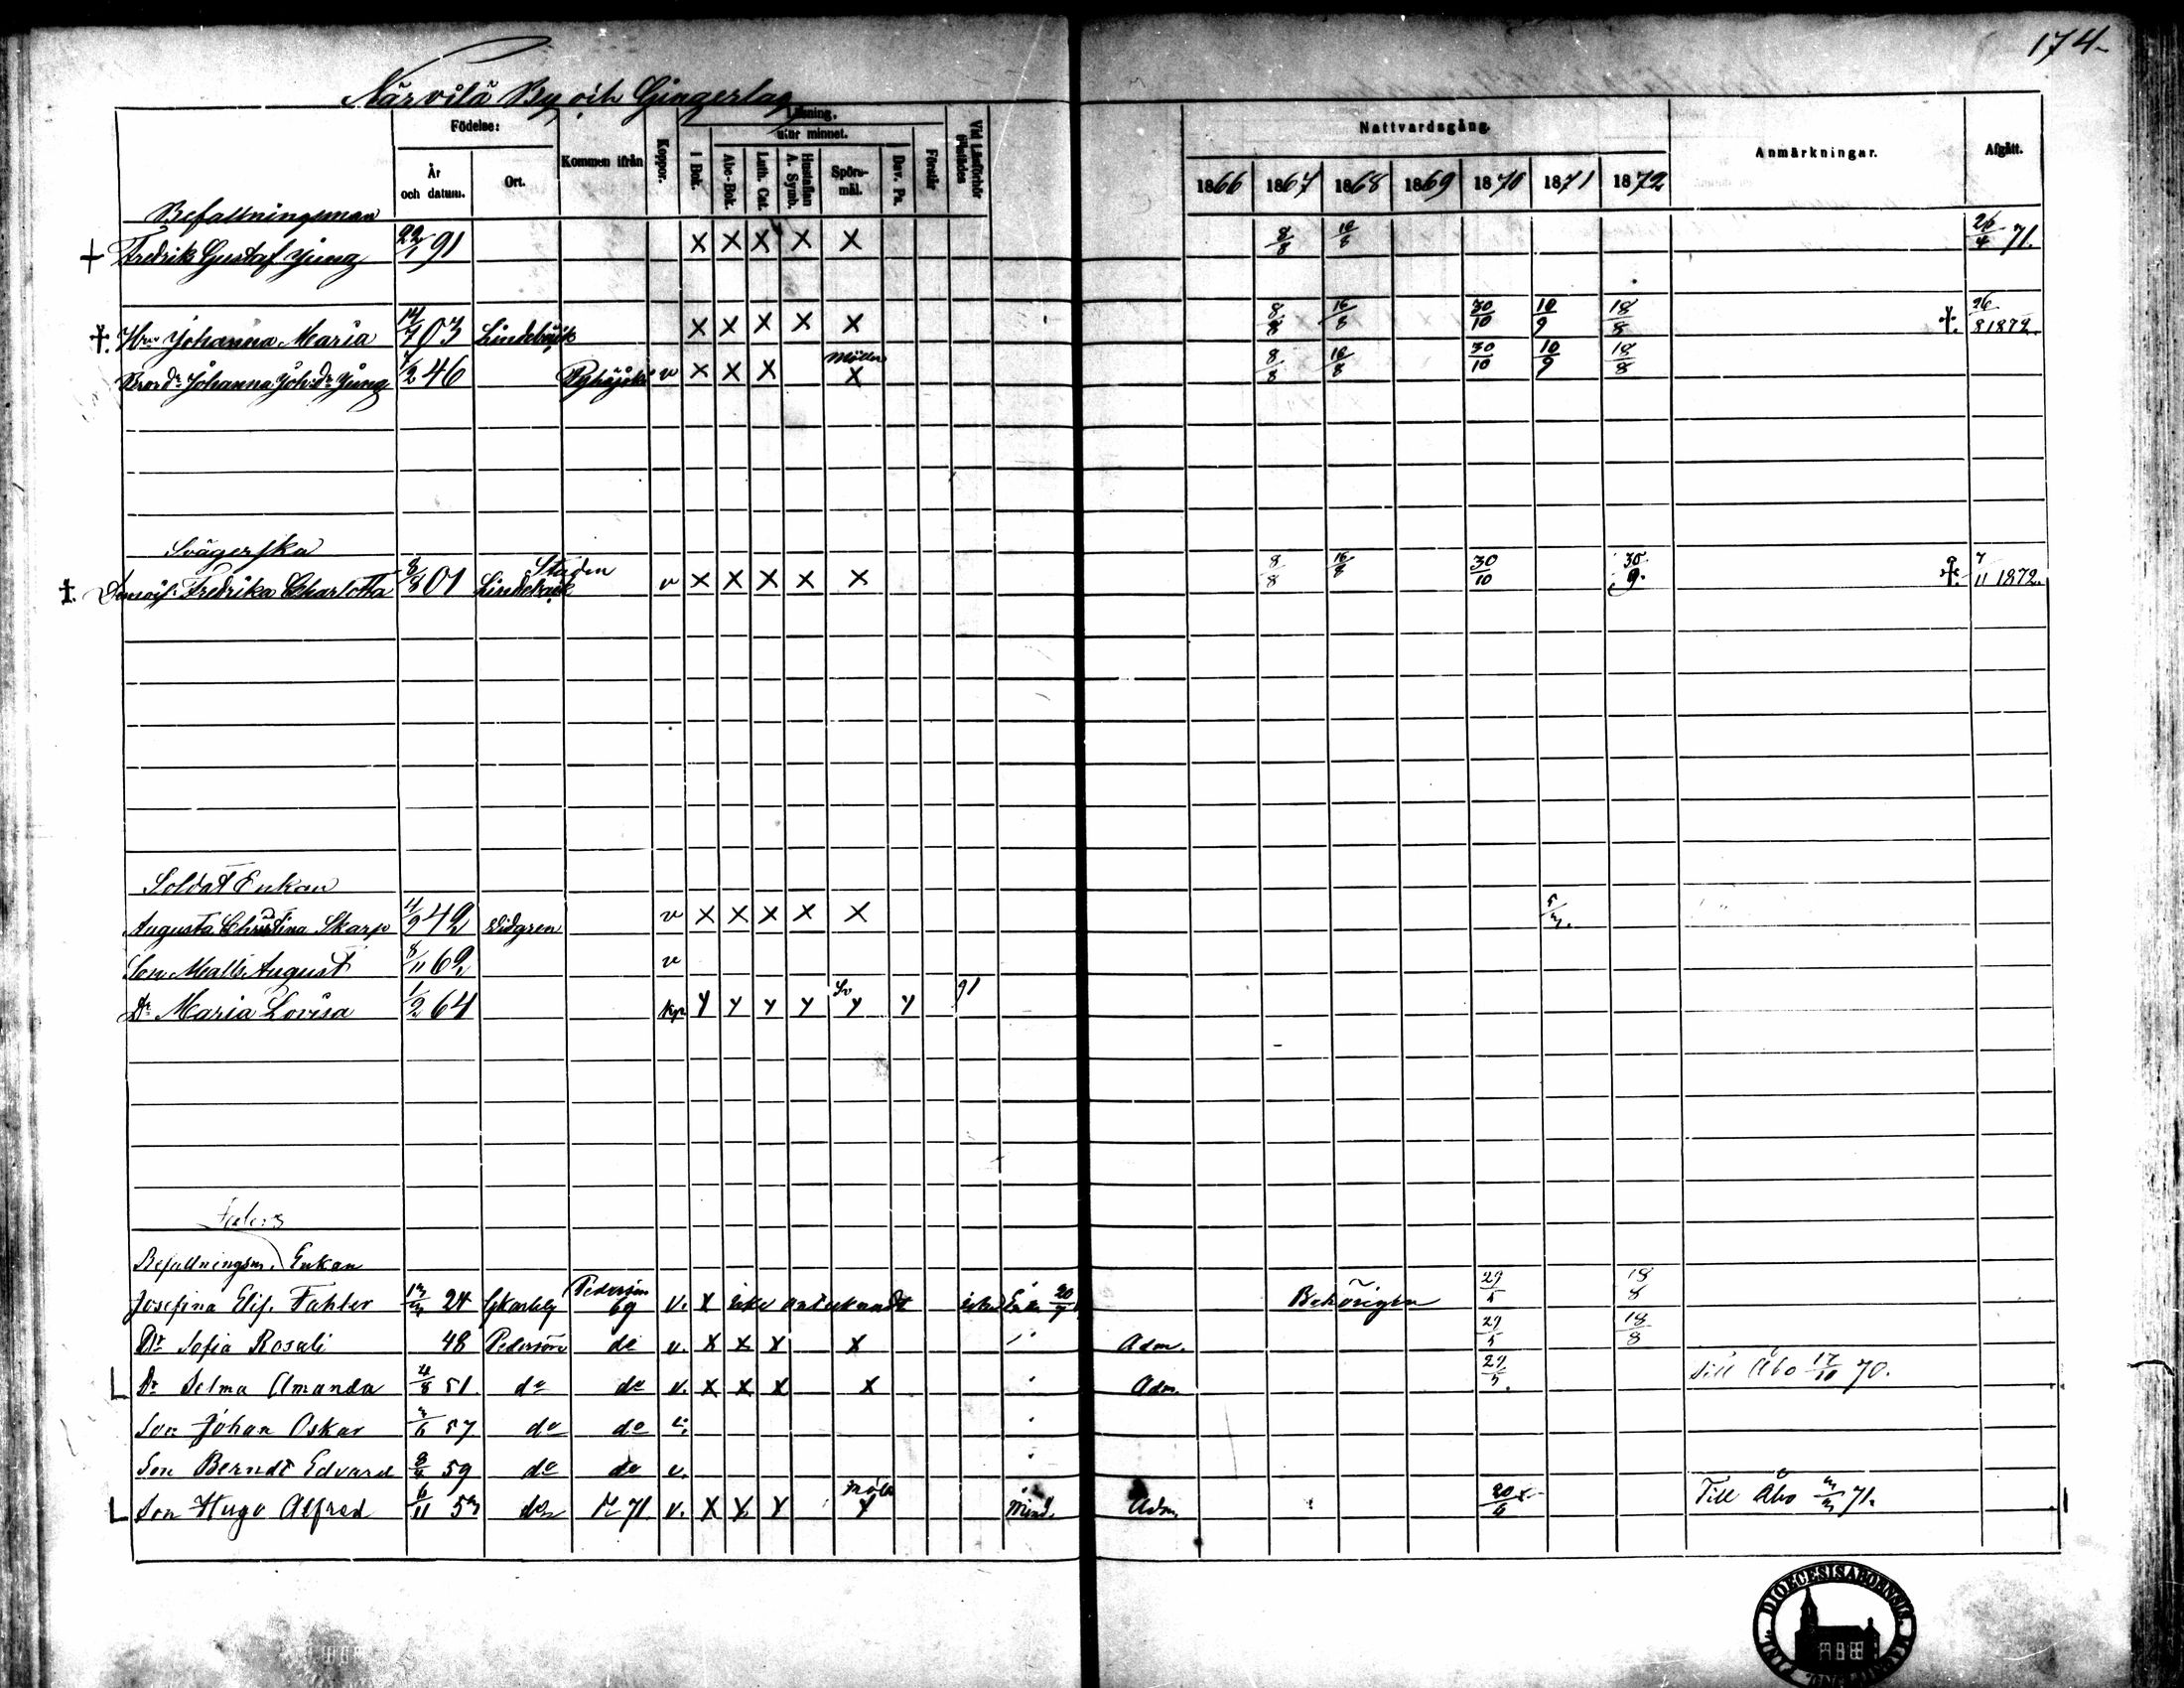 174
Närvilä By och Gingerlag
Födelse:
År och datum.
Ort.
Kommen ifrån
Koppor.
Läsning.
utur minnet.
I Bok.
Abc-Bok.
Luth. Cat.
Hustaflan A. Symb.
Spörs-mål.
Dav. Ps.
Förstår
Vid Läsförhör
Nattvardsgång.
1866 1867 1868 1869 1870 1871 1872
Anmärkningar.
Afgått.
Befallningsman
+ Fredrik Gustaf Ljung 22/1 91 X X X X X 8/8 16/8 26/4 71.
†. Hru Johanna Maria 14/7 03 Lindebäck X X X X X 8/8 16/8 30/10 10/9 18/8 †. 26/8 1872
Bror dr Johanna Joh:dr Ljung 7/2 46 Pyhäjoki v X X X X 8/8 16/8 30/10 10/9 18/8
Svägerska
†. Demois. Fredrika Charlotta 8/8 01 Staden Lindebäck v X X X X X 8/8 16/8 30/10 30/9. †. 7/11 1872.
Soldat Enkan
Augusta Christina Skarp 4/9 42 Widgren v X X X X X
Son Matts August 8/11 69 v
Dr Maria Lovisa 1/2 64 kp 91
Befallningsm. Enkan
Josefina Elis. Fahler 24 Pedersöre 69 v. X icke 20/7 Behörigen 29/5 18/8
Dr Sofia Rosali 48 Pedersöre do v. X X X X Adm. 29/5 18/8
L Dr Selma Amanda 4/8 51 do do v. X X X X Adm. 29/5. Till Åbo 17/10 70.
Son Johan Oskar 57 do do v.
Son Berndt Edvard 59 do do v.
L Son Hugo Alfred 6/11 do 71. v. X X X X Adm. Till Åbo 71.